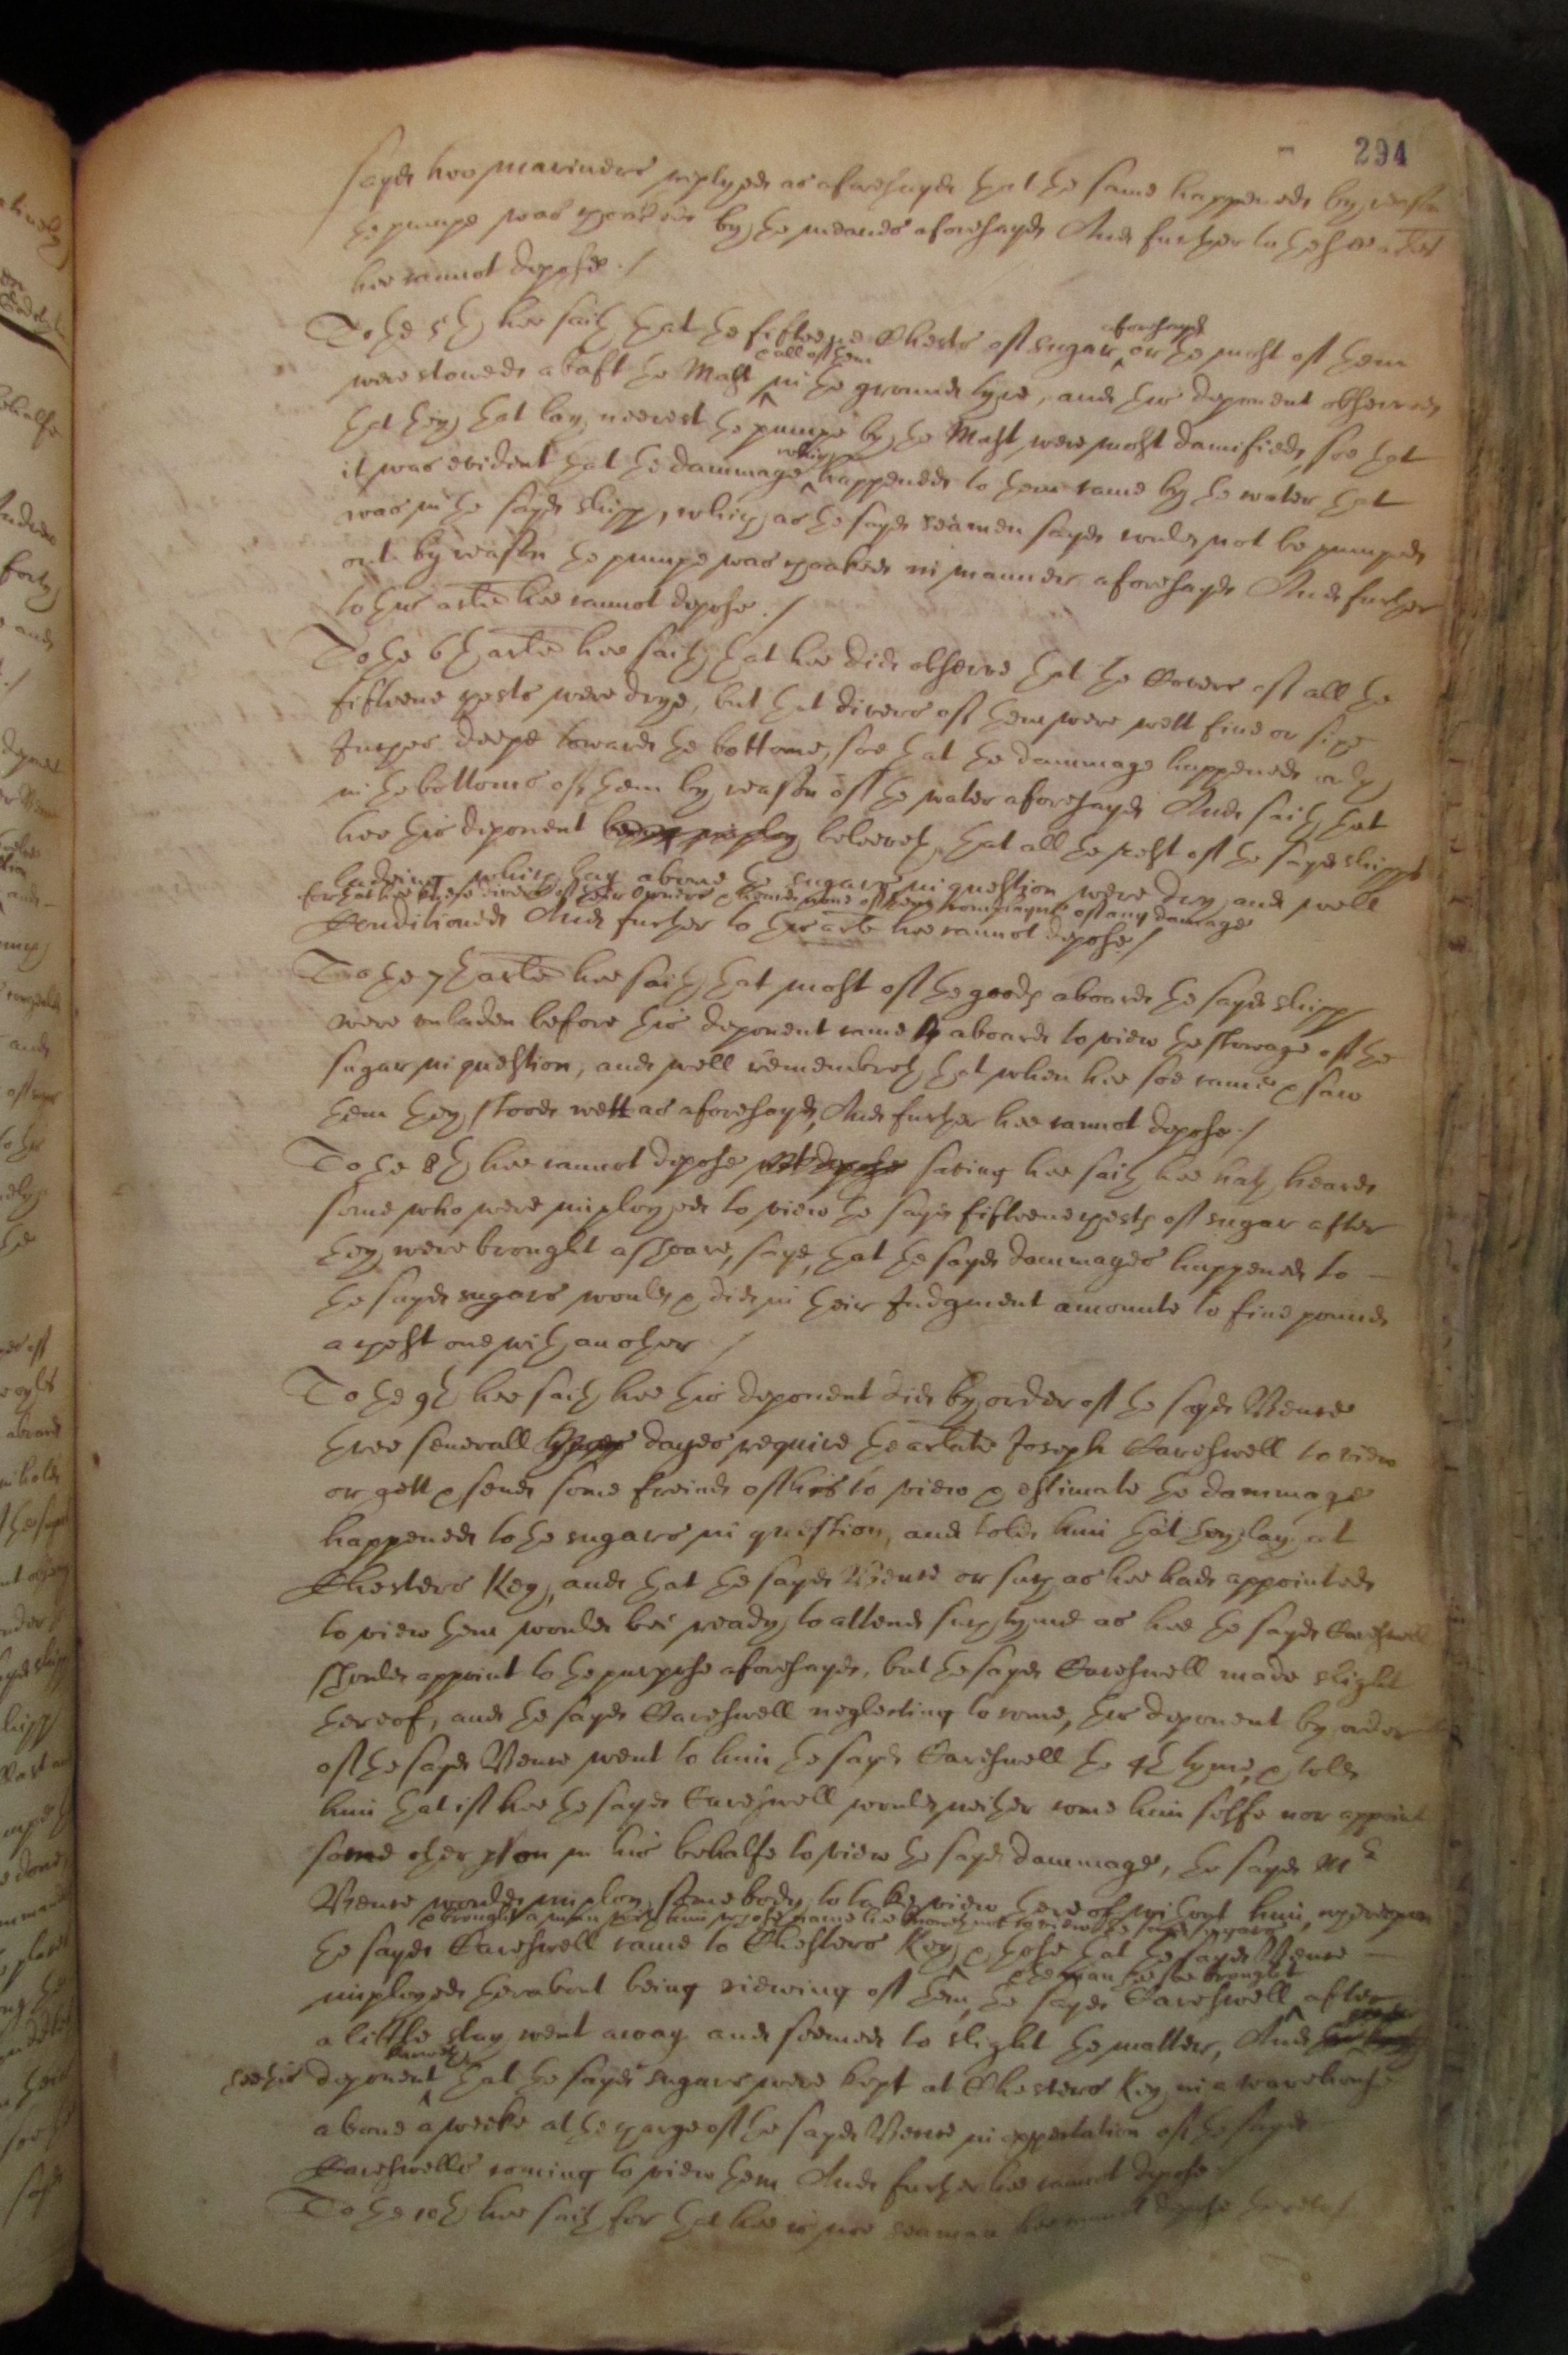 294
sayde hee mariners replyed as aforesayde that the same happened by reason
the pumpe was choaked by the meanes aforesayde And further to these articles
hee cannot depose ./
To the 5th hee saith that the fifteene Chests of sugar aforesayde or the most of them
were stowed abaft the Mast & all of them in the ground tyre, and this deponent observed
that they that lay neerest the pumpe by the Mast were most damnified, soe that
it was evident that the dammage which happened to them came by the water that
was in the sayde shipp, which as the sayde seamen sayde could not be pumped
out by reason the pumpe was choaked in manner aforesayde And further
to this arlē hee cannot depose ./
To the 6th arlē hee saith that hee did observe that the Covers of all the
fifteene chests were drye, but that divers of them were wett five or six
Inches deepe towards the bottome, soe that the dammage happened only
in the bottoms of them by reason of the water aforesayde And saith that
hee this deponent beleeveth that all the rest of the sayde shipps
ladeing which lay above the sugars in question were dry and well
for that hee knoweth divers of their Owners & heard none of them complayne of any damage
Conditioned And further to this arlē hee cannot depose /
To the 7th arlē hee saith that most of the goods aboard the sayde shipp
were unladen before this deponent came aboard to view the stowage of the
sugar in question, and well remembreth that when hee soe came & saw
them they stood wett as aforesayd, And further hee cannot depose ./
To the 8th hee cannot depose not depose saving hee saith hee hath heard
some who were imployed to view the sayde fifteene chests of sugar after
they were brought ashoare, saye, that the sayde dammages happened to
the sayde sugars would & did in their Judgment amounte to five pounds
a chest one with another /
To the 9th hee saith hee this deponent did by order of the sayde Venue
three severall dayes require the arlate Joseph Careswell to view
or gett & send some freind of his to view & estimate the dammage
happened to the sugars in question, and told him that they lay at
Chesters Key, and that the sayde Venue or such as hee had appointed
to view them would bee ready to attend such tyme as hee the sayde Careswell
should appoint to the purpose aforesayde, but the sayde Careswell made slight
thereof, and the sayde Careswell neglecting to come, this deponent by order
of the sayde Venue went to him the sayde Careswell the 4th tyme, & told
him that if hee the sayde Careswell would neither come him selfe nor appoint
some other pson in his behalfe to view the sayd dammage, the sayde Mr
Venue would imploy some body to take view thereof without him, whereupon
& brought a man with him whose name hee knoweth not to view the sayde sugars
the sayde Careswell came to Chesters Key, & those that the sayde Venue
imployed therabout being viewing of them, the sayde Careswell & the man hee soe brought after
a little stay went away and seemed to slight the matter, And
hee this deponent knoweth that the sayde sugars were kept at Chesters Key in a warehouse
above a weeke at the charge of the sayde Venue in expectation of the sayde
Careswells coming to view them And further hee cannot depose
To the 10th hee saith for that hee is noe seaman hee cannot depose thereto /